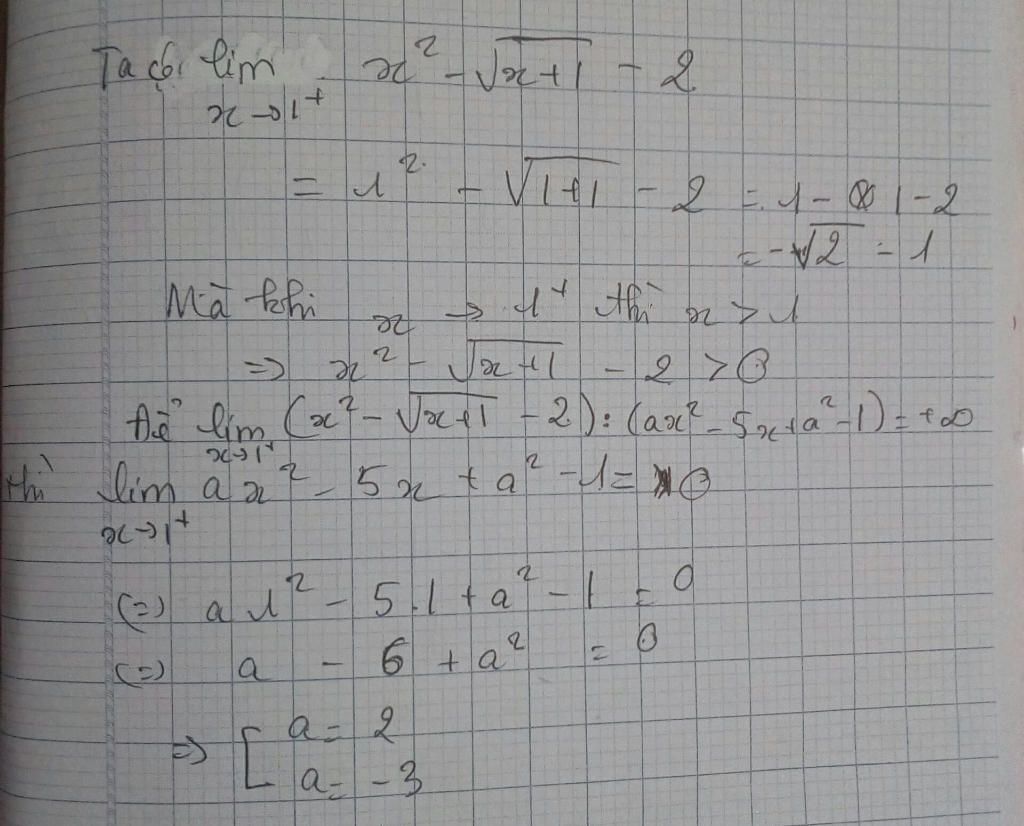 Ta có: lim x² - √(x+1) - 2
x→1⁺
= 1² - √(1+1) - 2 = 1 - 1 - 2
= -√2 - 1
Mà khi x → 1⁺ thì x > 1
=> x² - √(x+1) - 2 > 0
Để lim (x² - √(x+1) - 2) : (ax² - 5x + a² - 1) = +∞
x→1⁺
thì lim ax² - 5x + a² - 1 = 0
x→1⁺
(=) a 1² - 5.1 + a² - 1 = 0
(=) a - 6 + a² = 0
=> [ a = 2
a = -3